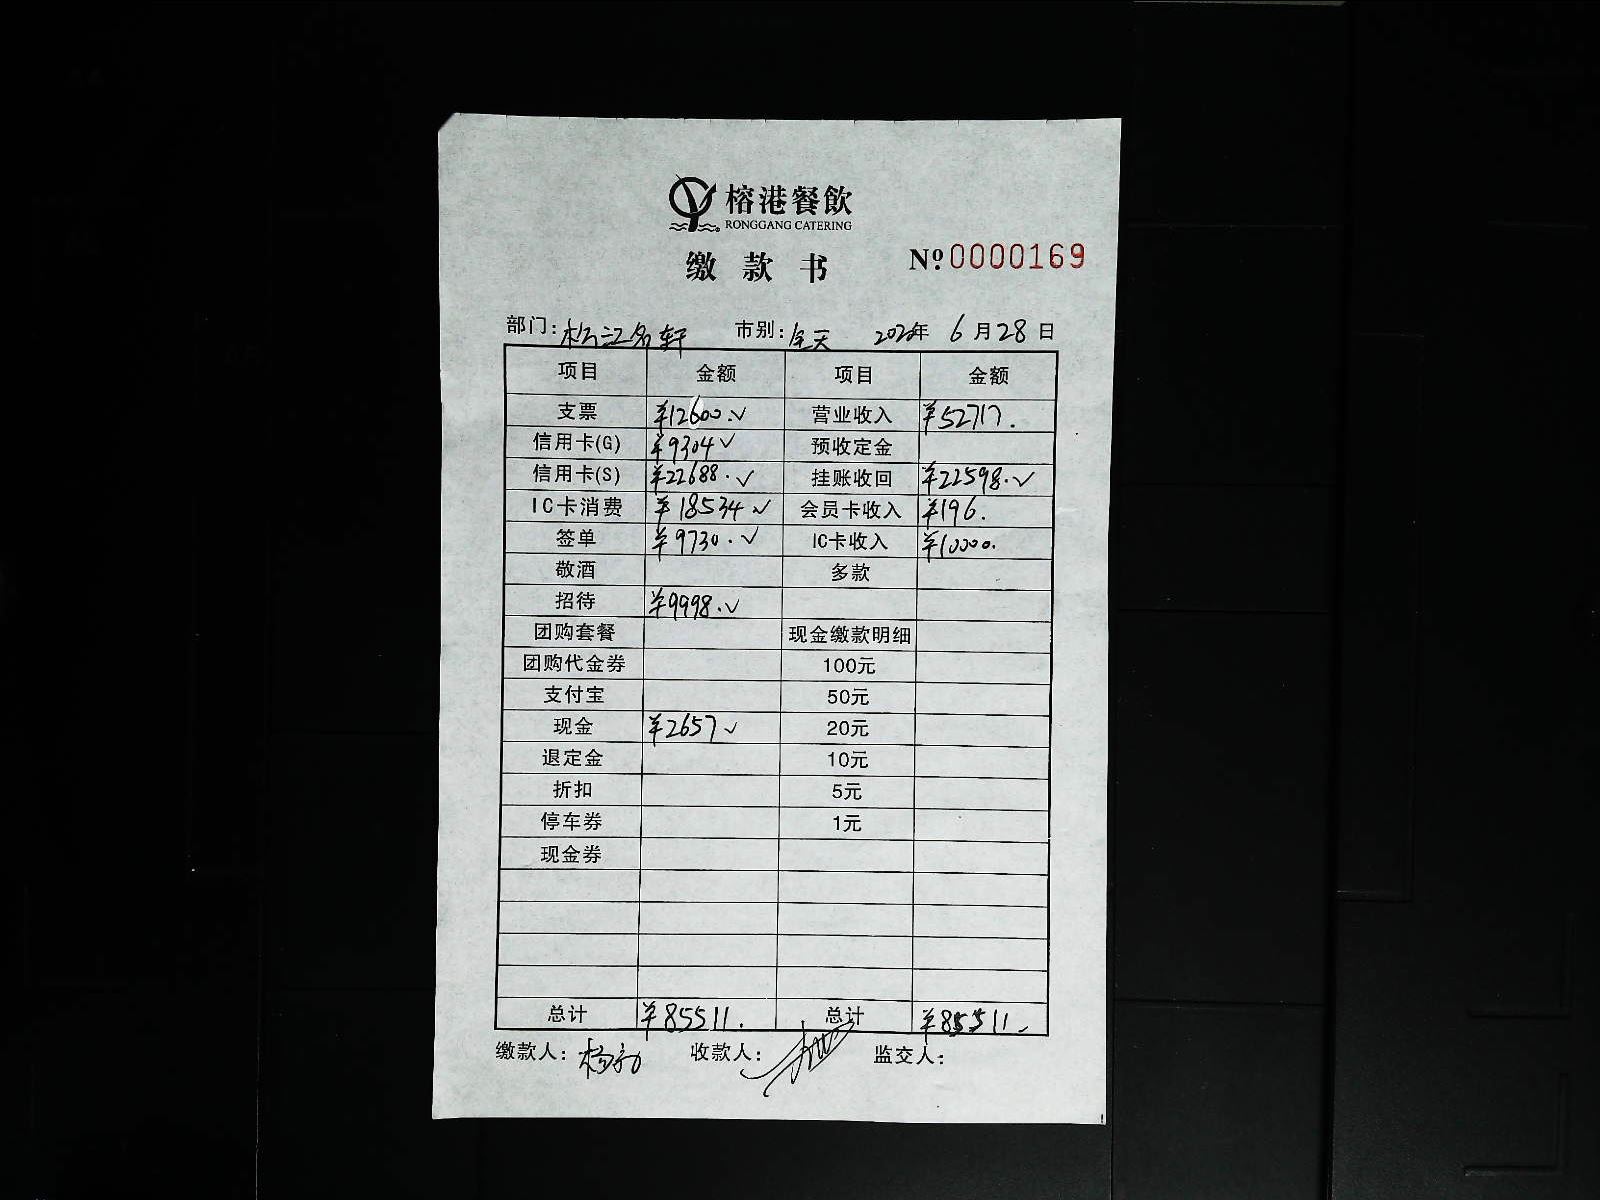 榕港餐飲
RONGGANG CATERING
缴款书 Nº 0000169
部门: 松江名轩 市别: 全天 2020年 6月28日
项目 金额 项目 金额
支票 ¥12600.✓ 营业收入 ¥52717.
信用卡(G) ¥9304✓ 预收定金
信用卡(S) ¥22688.✓ 挂账收回 ¥22598.✓
IC卡消费 ¥18534✓ 会员卡收入 ¥196.
签单 ¥9730.✓ IC卡收入 ¥10000.
敬酒 多款
招待 ¥9998.✓
团购套餐 现金缴款明细
团购代金券 100元
支付宝 50元
现金 ¥2657✓ 20元
退定金 10元
折扣 5元
停车券 1元
现金券
总计 ¥85511. 总计 ¥85511.
缴款人: 收款人: 监交人: